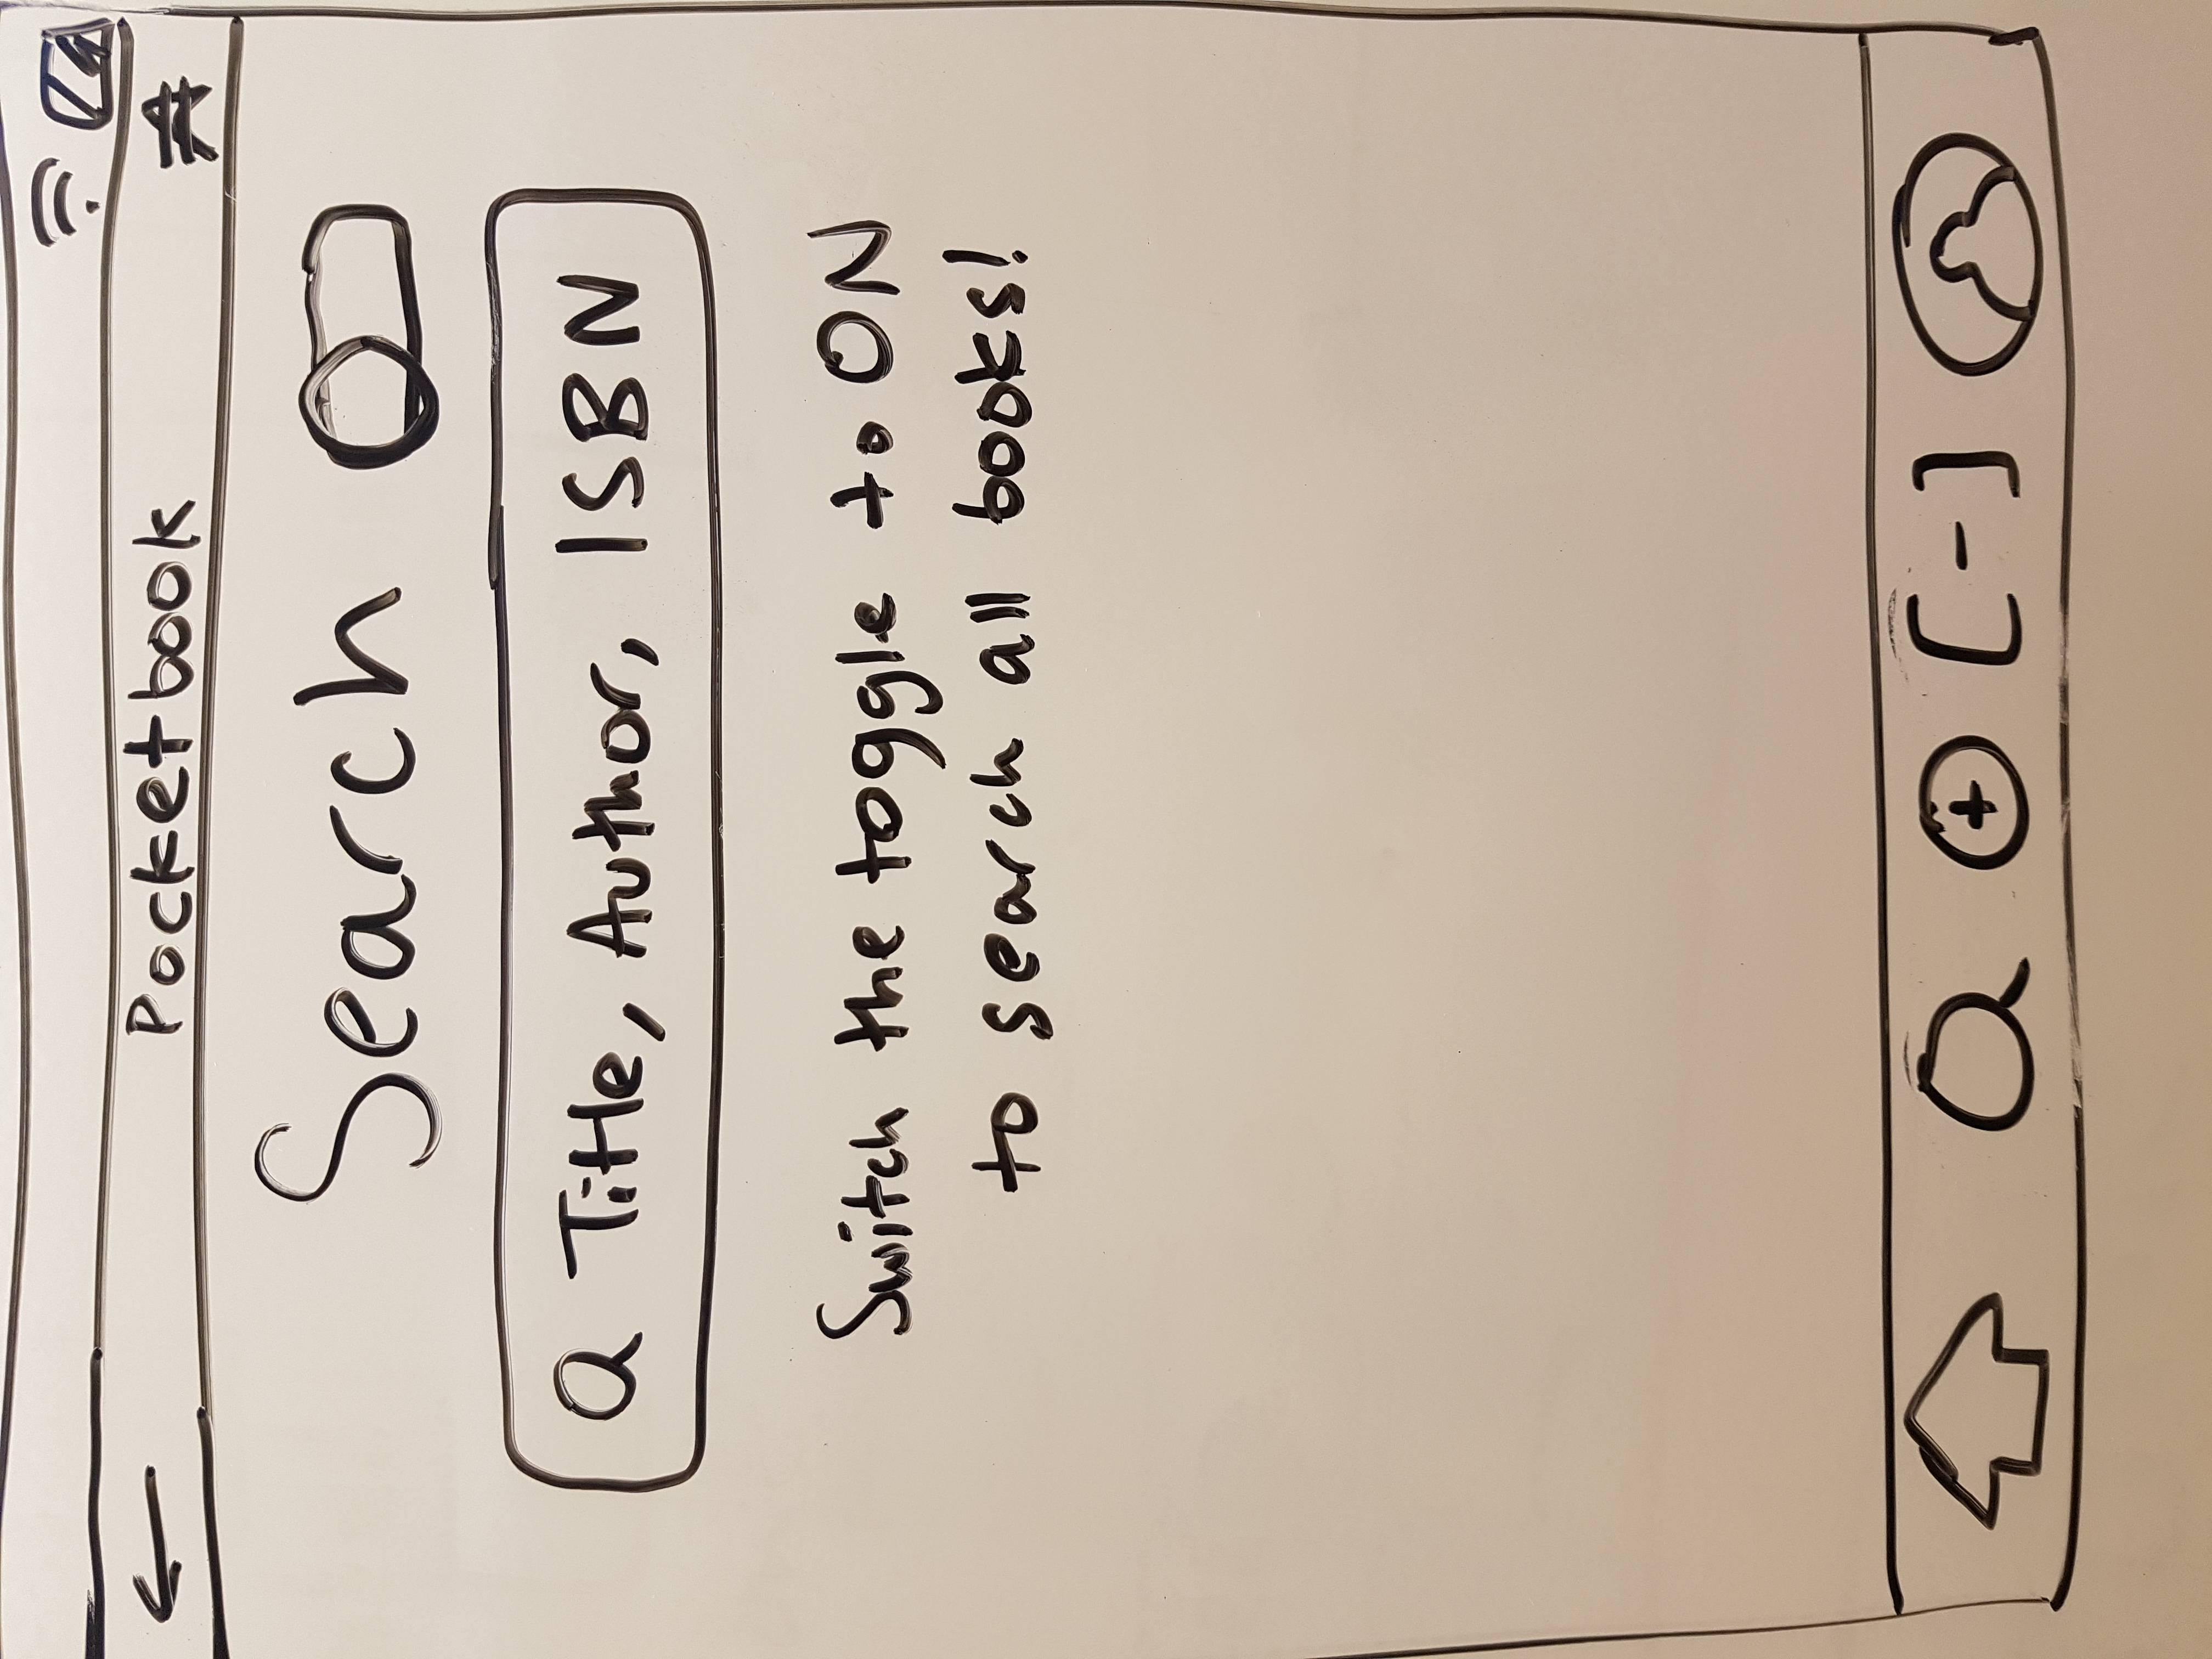 Pocketbook
Search
Title, Author, ISBN
Switch the toggle to ON
to search all books!